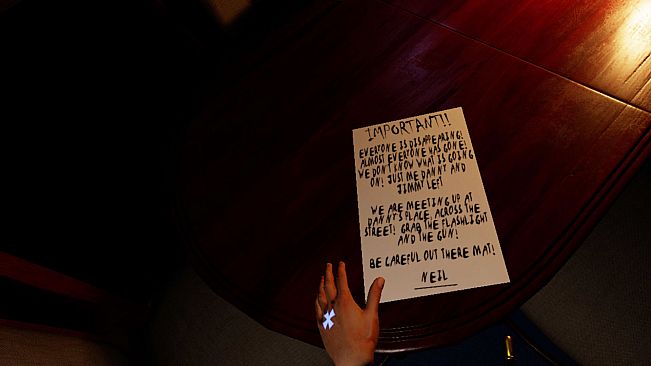 IMPORTANT!!
EVERYONE IS DISAPPEARING!
ALMOST EVERYONE HAS GONE!
WE DON'T KNOW WHAT IS GOING
ON! JUST ME DANNY AND
JIMMY LEFT
WE ARE MEETING UP AT
DANNY'S PLACE, ACROSS THE
STREET! GRAB THE FLASHLIGHT
AND THE GUN!
BE CAREFUL OUT THERE MAT!
NEIL